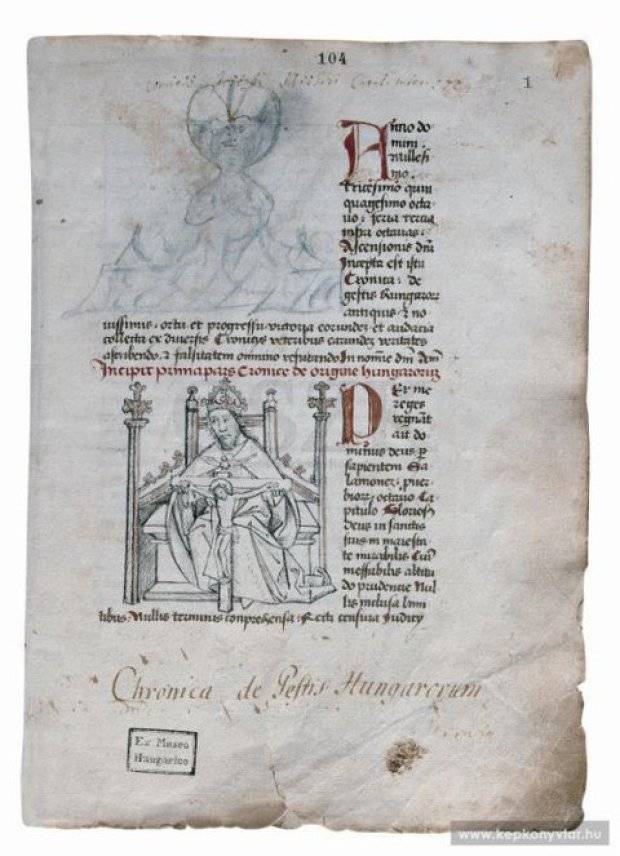 104
1
Anno do
mini
millesi
mo.
Tricesimo quin
quagesimo octa
uo. feria tercia
infra octauas.
Ascensionis dni
Incepta est ista
Cronica. de
gestis hungaror
antiquis & no
uissimis. ortu et progressu. uictoria eorundez et audacia
collecta ex diuersis Cronicis veteribus earundez veritates
ascribendo. & falsitatem omnino refutando In nomine dni Am
Incipit prima pars Cronice de origine hungarorum
Per me
reges
regnat
ait do
minus deus p
sapientem Sa
lamonez. puer
biorz octauo Ca
pitulo Glorios
deus in sanctis
suis in maiesta
te mirabilis Cui
ineffabilis altitu
do prudencie Nul
lis inclusa limi
tibus. Nullis terminis conprehensa. Recti censura Judicy
Chronica de Gestis Hungarorum
Ex Museo
Hungarico
www.kepkonyvtar.hu